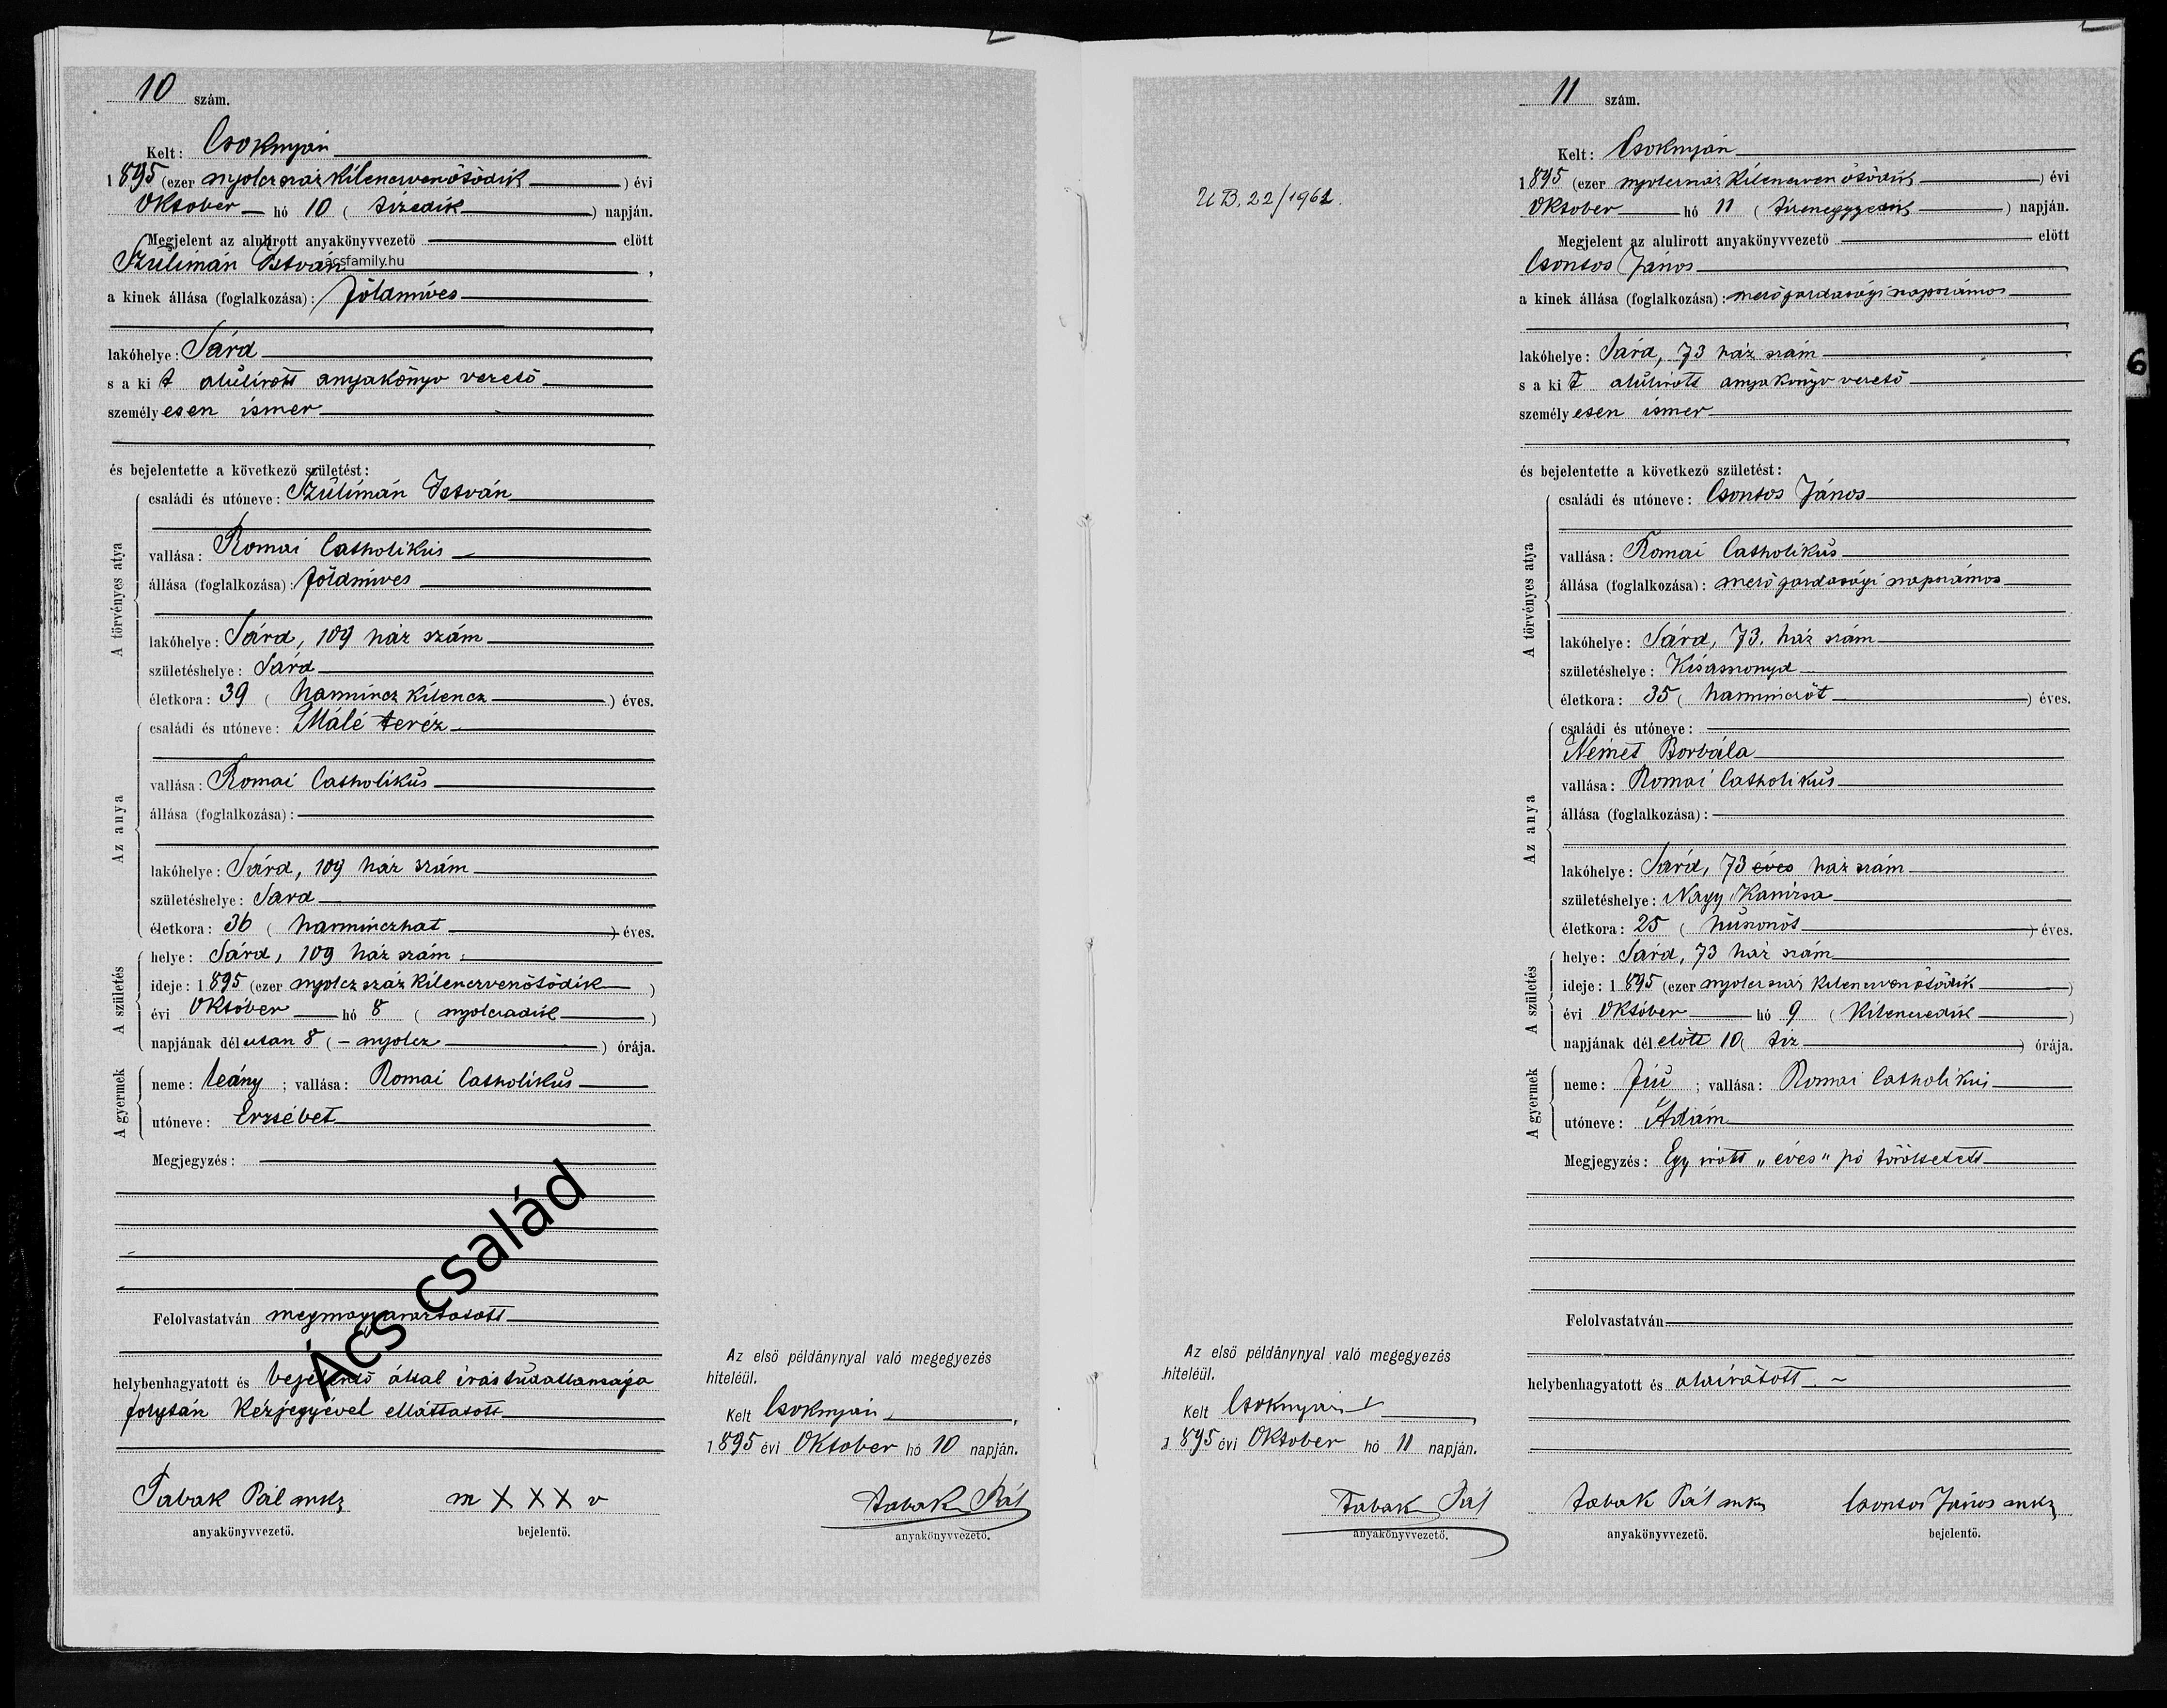 10 szám.
Kelt: Csoknyán
1895 (ezer nyolczszáz kilenczvenötödik) évi
Oktober hó 10 (tizedik) napján.
Megjelent az alulirott anyakönyvvezetö elött
Szulimán István
acsfamily.hu
a kinek állása (foglalkozása): földmives
lakóhelye: Sárd
s a kit alulirott anyakönyv vezető
személyesen ismer
és bejelentette a következö születést:
A törvényes atya
családi és utóneve: Szulimán István
vallása: Romai Catholikus
állása (foglalkozása): földmives
lakóhelye: Sárd, 109 ház szám
születéshelye: Sárd
életkora: 39 (harmincz kilencz) éves.
Az anya
családi és utóneve: Málé teréz
vallása: Romai Catholikus
állása (foglalkozása):
lakóhelye: Sárd, 109 ház szám
születéshelye: Sárd
életkora: 36 (harminczhat) éves.
A születés
helye: Sárd, 109 ház szám
ideje: 1895 (ezer nyolcz száz kilenczvenötödik)
évi Október hó 8 (nyolczadik)
napjának délután 8 (nyolcz) órája.
A gyermek
neme: leány; vallása: Romai Catholikus
utóneve: Erzsébet
Megjegyzés:
Ács család
Felolvastatván megmagyaráztatott
helybenhagyatott és bejelentő által irástudatlansága
folytán kézjegyével elláttatott
Tabak Pál mk
anyakönyvvezetö.
m X X X v
bejelentö.
Az elsö példánynyal való megegyezés
hiteléül.
Kelt Csoknyán,
1895 évi Oktober hó 10 napján.
Tabak Pál
anyakönyvvezetö.
U B. 22/1961.
Az elsö példánynyal való megegyezés
hiteléül.
Kelt Csoknyán
1895 évi Oktober hó 11 napján.
Tabak Pál
anyakönyvvezetö.
11 szám.
Kelt: Csoknyán
1895 (ezer nyolczszáz kilenczven ötödik) évi
Oktober hó 11 (tizenegyyedik) napján.
Megjelent az alulirott anyakönyvvezetö elött
Csontos János
a kinek állása (foglalkozása): mezőgazdasági napszámos
lakóhelye: Sárd, 73 ház szám
s a kit alulirott anyakönyv vezető
személyesen ismer
és bejelentette a következö születést:
A törvényes atya
családi és utóneve: Csontos János
vallása: Romai Catholikus
állása (foglalkozása): mező gazdasági napszámos
lakóhelye: Sárd, 73. ház szám
születéshelye: Kisasszonyd
életkora: 35 (harminczöt) éves.
Az anya
családi és utóneve:
Német Borbála
vallása: Romai Catholikus
állása (foglalkozása):
lakóhelye: Sárd, 73 éves ház szám
születéshelye: Nagy Kanizsa
életkora: 25 (huszonöt) éves.
A születés
helye: Sárd, 73 ház szám
ideje: 1895 (ezer nyolczszáz kilenczven ötödik)
évi Október hó 9 (kilenczedik)
napjának délelött 10 (tiz) órája.
A gyermek
neme: fiú; vallása: Romai Catholikus
utóneve: Ádám
Megjegyzés: Egy irott „éves” szó töröltetett
Felolvastatván
helybenhagyatott és aláiratott.
Tabak Pál mk
anyakönyvvezetö.
Csontos János mk
bejelentö.
6